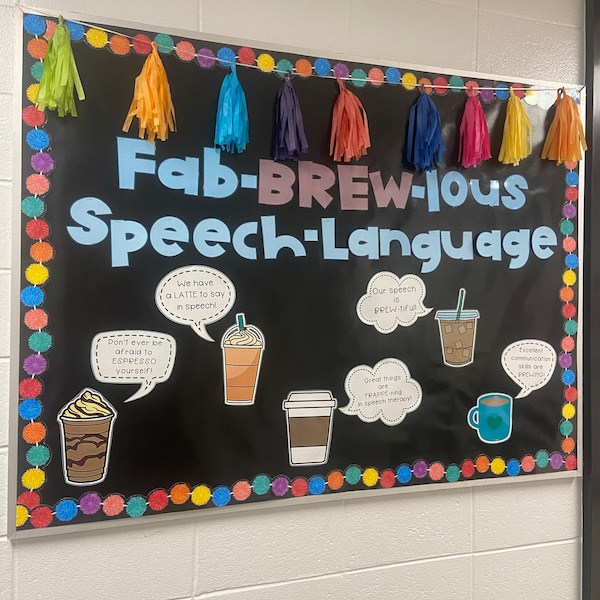 Fab-BREW-lous
Speech-Language
We have
a LATTE to say
in speech!
Our speech
is
BREW-tiful!
Don't ever be
afraid to
ESPRESSO
yourself!
Great things
are
FRAPPE-ning
in speech therapy!
Excellent
communication
skills are
BREWING!